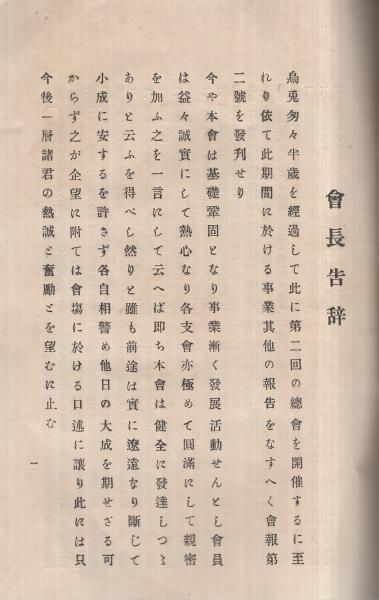 會長告辭
烏兎匆々半歳を經過して此に第二回の總會を開催するに至
れり依て此期間に於ける事業其他の報告をなすへく會報第
二號を發刊せり
今や本會は基礎鞏固となり事業漸く發展活動せんとし會員
は益々誠實にして熱心なり各支會亦極めて圓滿にして親密
を加ふ之を一言にして云へば即ち本會は健全に發達しつゝ
ありと云ふを得べし然りと雖も前途は實に遼遠なり斷じて
小成に安するを許さず各自相警め他日の大成を期せざる可
からず之が企望に附ては會場に於ける口述に讓り此には只
今後一層諸君の熱誠と奮勵とを望むに止む
一